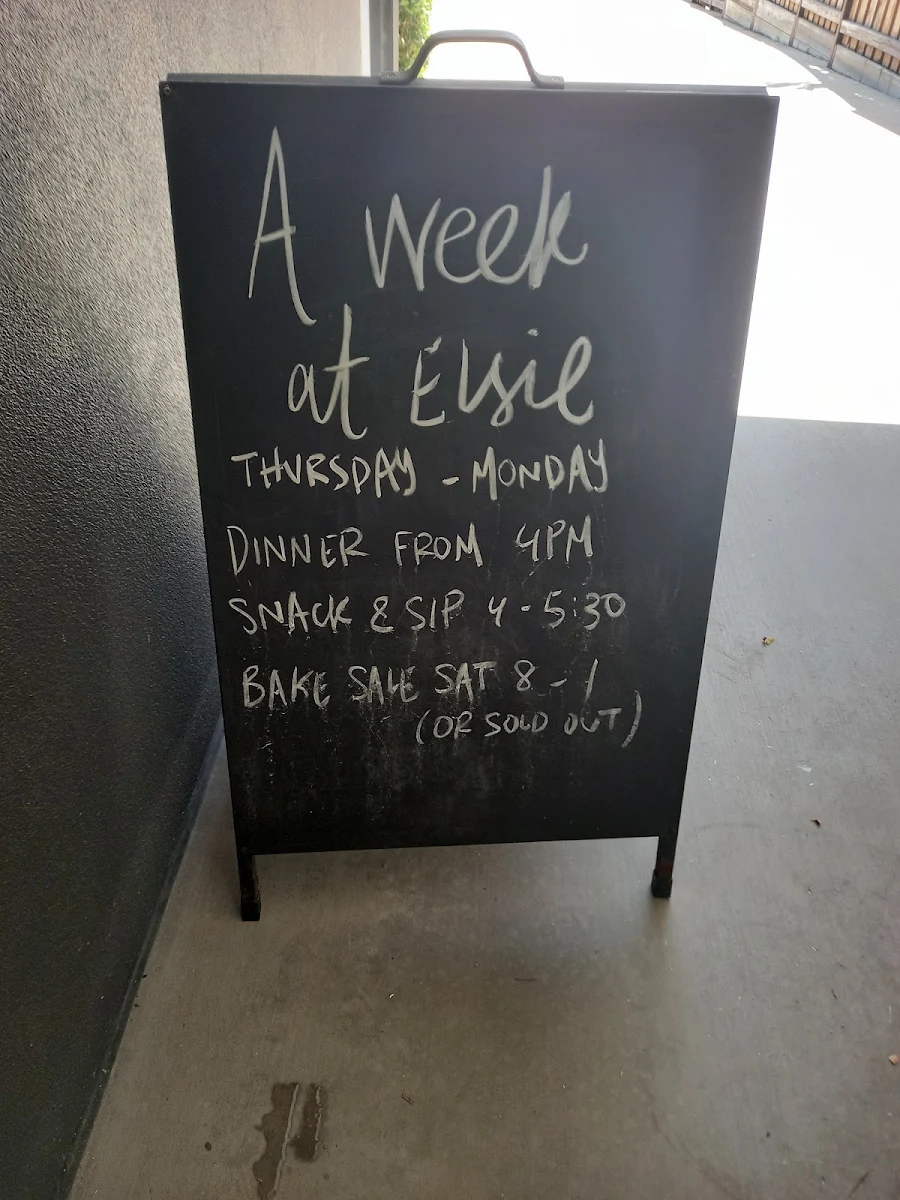 A week
at Elsie
THURSDAY - MONDAY
DINNER FROM 4PM
SNACK & SIP 4 - 5:30
BAKE SALE SAT 8 - 1
(OR SOLD OUT)